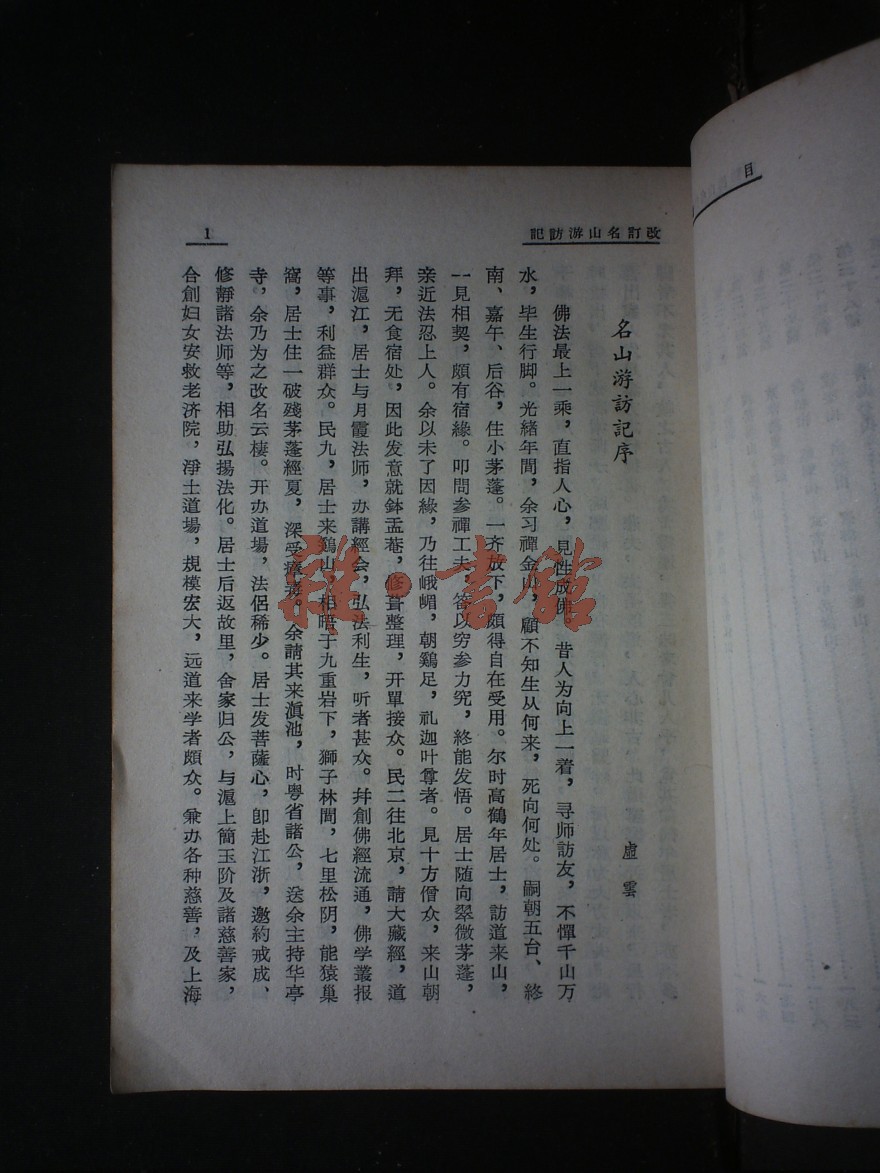 改訂名山游訪記
1
名山游訪記序
虛雲
佛法最上一乘，直指人心，見性成佛。昔人为向上一着，寻师訪友，不憚千山万
水，毕生行脚。光緒年間，余习禪金山，顧不知生从何来，死向何处。嗣朝五台、終
南、嘉午、后谷，住小茅蓬。一齐放下，頗得自在受用。尔时高鶴年居士，訪道来山，
一見相契，頗有宿緣。叩問参禪工夫，答以穷参力究，終能发悟。居士随向翠微茅蓬，
亲近法忍上人。余以未了因緣，乃往峨嵋，朝鷄足，礼迦叶尊者。見十方僧众，来山朝
拜，无食宿处，因此发意就鉢盂菴，修葺整理，开單接众。民二往北京，請大藏經，道
出滬江，居士与月霞法师，办講經会，弘法利生，听者甚众。幷創佛經流通，佛学叢报
等事，利益群众。民九，居士来鷄山，相晤于九重岩下，獅子林間，七里松阴，能猿巢
窩，居士住一破殘茅蓬經夏，深受瘴毒。余請其来滇池，时粤省諸公，送余主持华亭
寺，余乃为之改名云棲。开办道場，法侣稀少。居士发菩薩心，卽赴江浙，邀約戒成、
修靜諸法师等，相助弘揚法化。居士后返故里，舍家归公，与滬上簡玉阶及諸慈善家，
合創妇女安救老济院，淨土道場，規模宏大，远道来学者頗众。兼办各种慈善，及上海
雜·書館
目